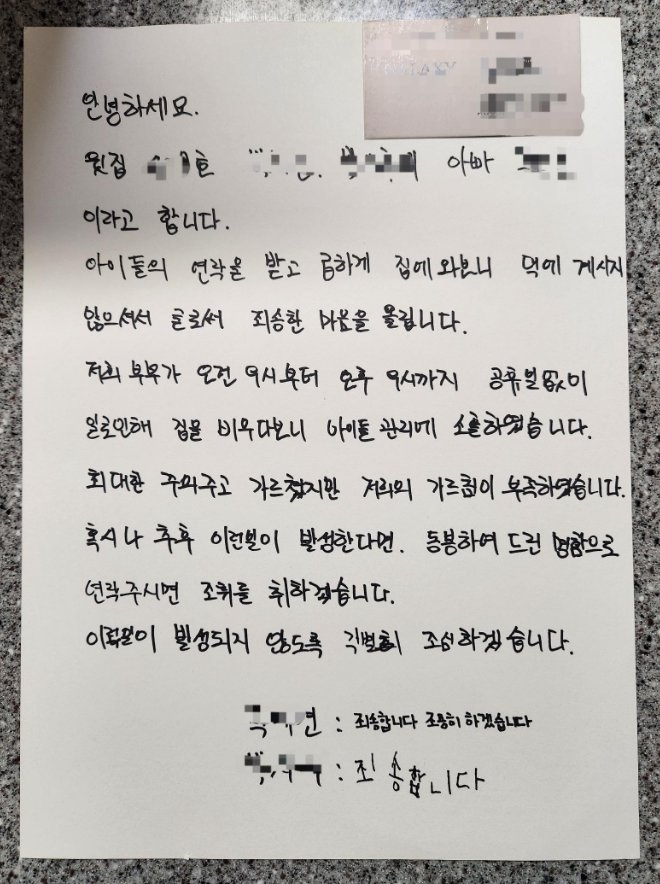 안녕하세요.
윗집 호 아빠
이라고 합니다.
아이들의 연락을 받고 급하게 집에와보니 댁에 계시지
않으셔서 글로써 죄송한 마음을 올립니다.
저희 부부가 오전 9시부터 오후 9시까지 공휴일없이
일로인해 집을 비우다보니 아이들 관리에 소홀하였습니다.
최대한 주의주고 가르쳤지만 저희의 가르침이 부족하였습니다.
혹시나 추후 이런일이 발생한다면. 동봉하여 드린 명함으로
연락주시면 조취를 취하겠습니다.
이런일이 발생되지 않도록 각별히 조심하겠습니다.
연 : 죄송합니다 조용히 하겠습니다
: 죄송합니다